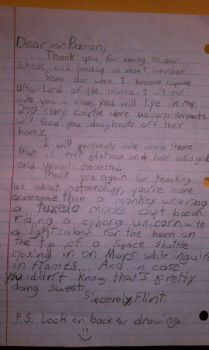 Dear mr. Ramon,
Thank you for coming to our
school and teaching us about weather.
Some day when I become supreme
Ultra-Lord of the universe I will not
make you a slave, you will live in my
200 story castle where unicorn servants
will feed you doughnuts off their
horns.
I will personally make you a throne
that is half platnum and half solid gold
and jewel encrested.
Thank you again for teaching
us about meteoroligy, you're more
awesome than a monkey wearing
a tuxedo made out bacon
riding a cyborg unicorn with
a lightsaber for the horn on
the tip of a space shuttle
closing in on Mars while ingulfed
in flames... And in case
you didn't know, that's pretty
dang sweet.
Sincerely, Flint
P.S. Look on back for drawing.